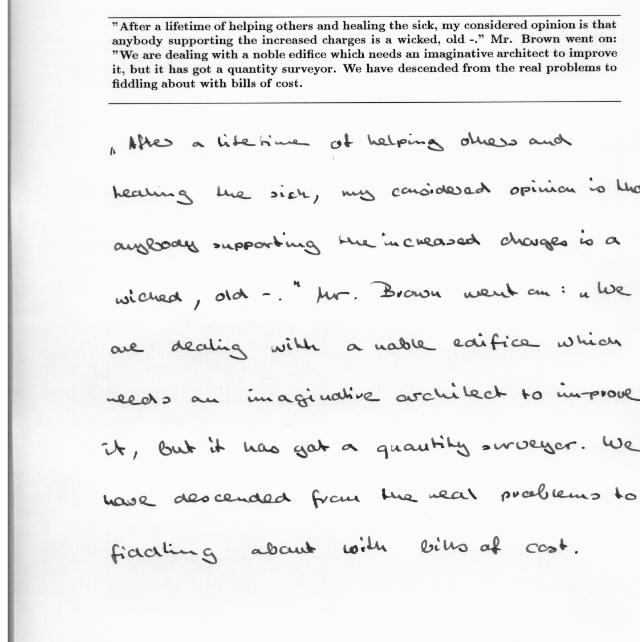 "After a lifetime of helping others and healing the sick, my considered opinion is that
anybody supporting the increased charges is a wicked, old -." Mr. Brown went on:
"We are dealing with a noble edifice which needs an imaginative architect to improve
it, but it has got a quantity surveyor. We have descended from the real problems to
fiddling about with bills of cost.
„After a lifetime of helping others and
healing the sick, my considered opinion is tha
anybody supporting the increased charges is a
wicked, old -." Mr. Brown went on: „We
are dealing with a noble edifice which
needs an imaginative architect to improve
it, but it has got a quantity surveyor. We
have descended from the real problems to
fiddling about with bills of cost.